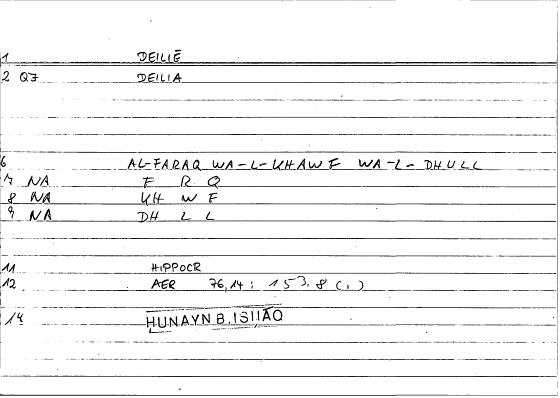 1 DEILIĒ
2 Q7 DEILIA
6 AL-FARAQ WA-L-KHAWF WA-L-DHULL
7 NA F R Q
8 NA KH W F
9 NA DH L L
11 HIPPOCR
12 AER 76,14: 153.8 (,)
14 HUNAYN B. ISḤĀQ